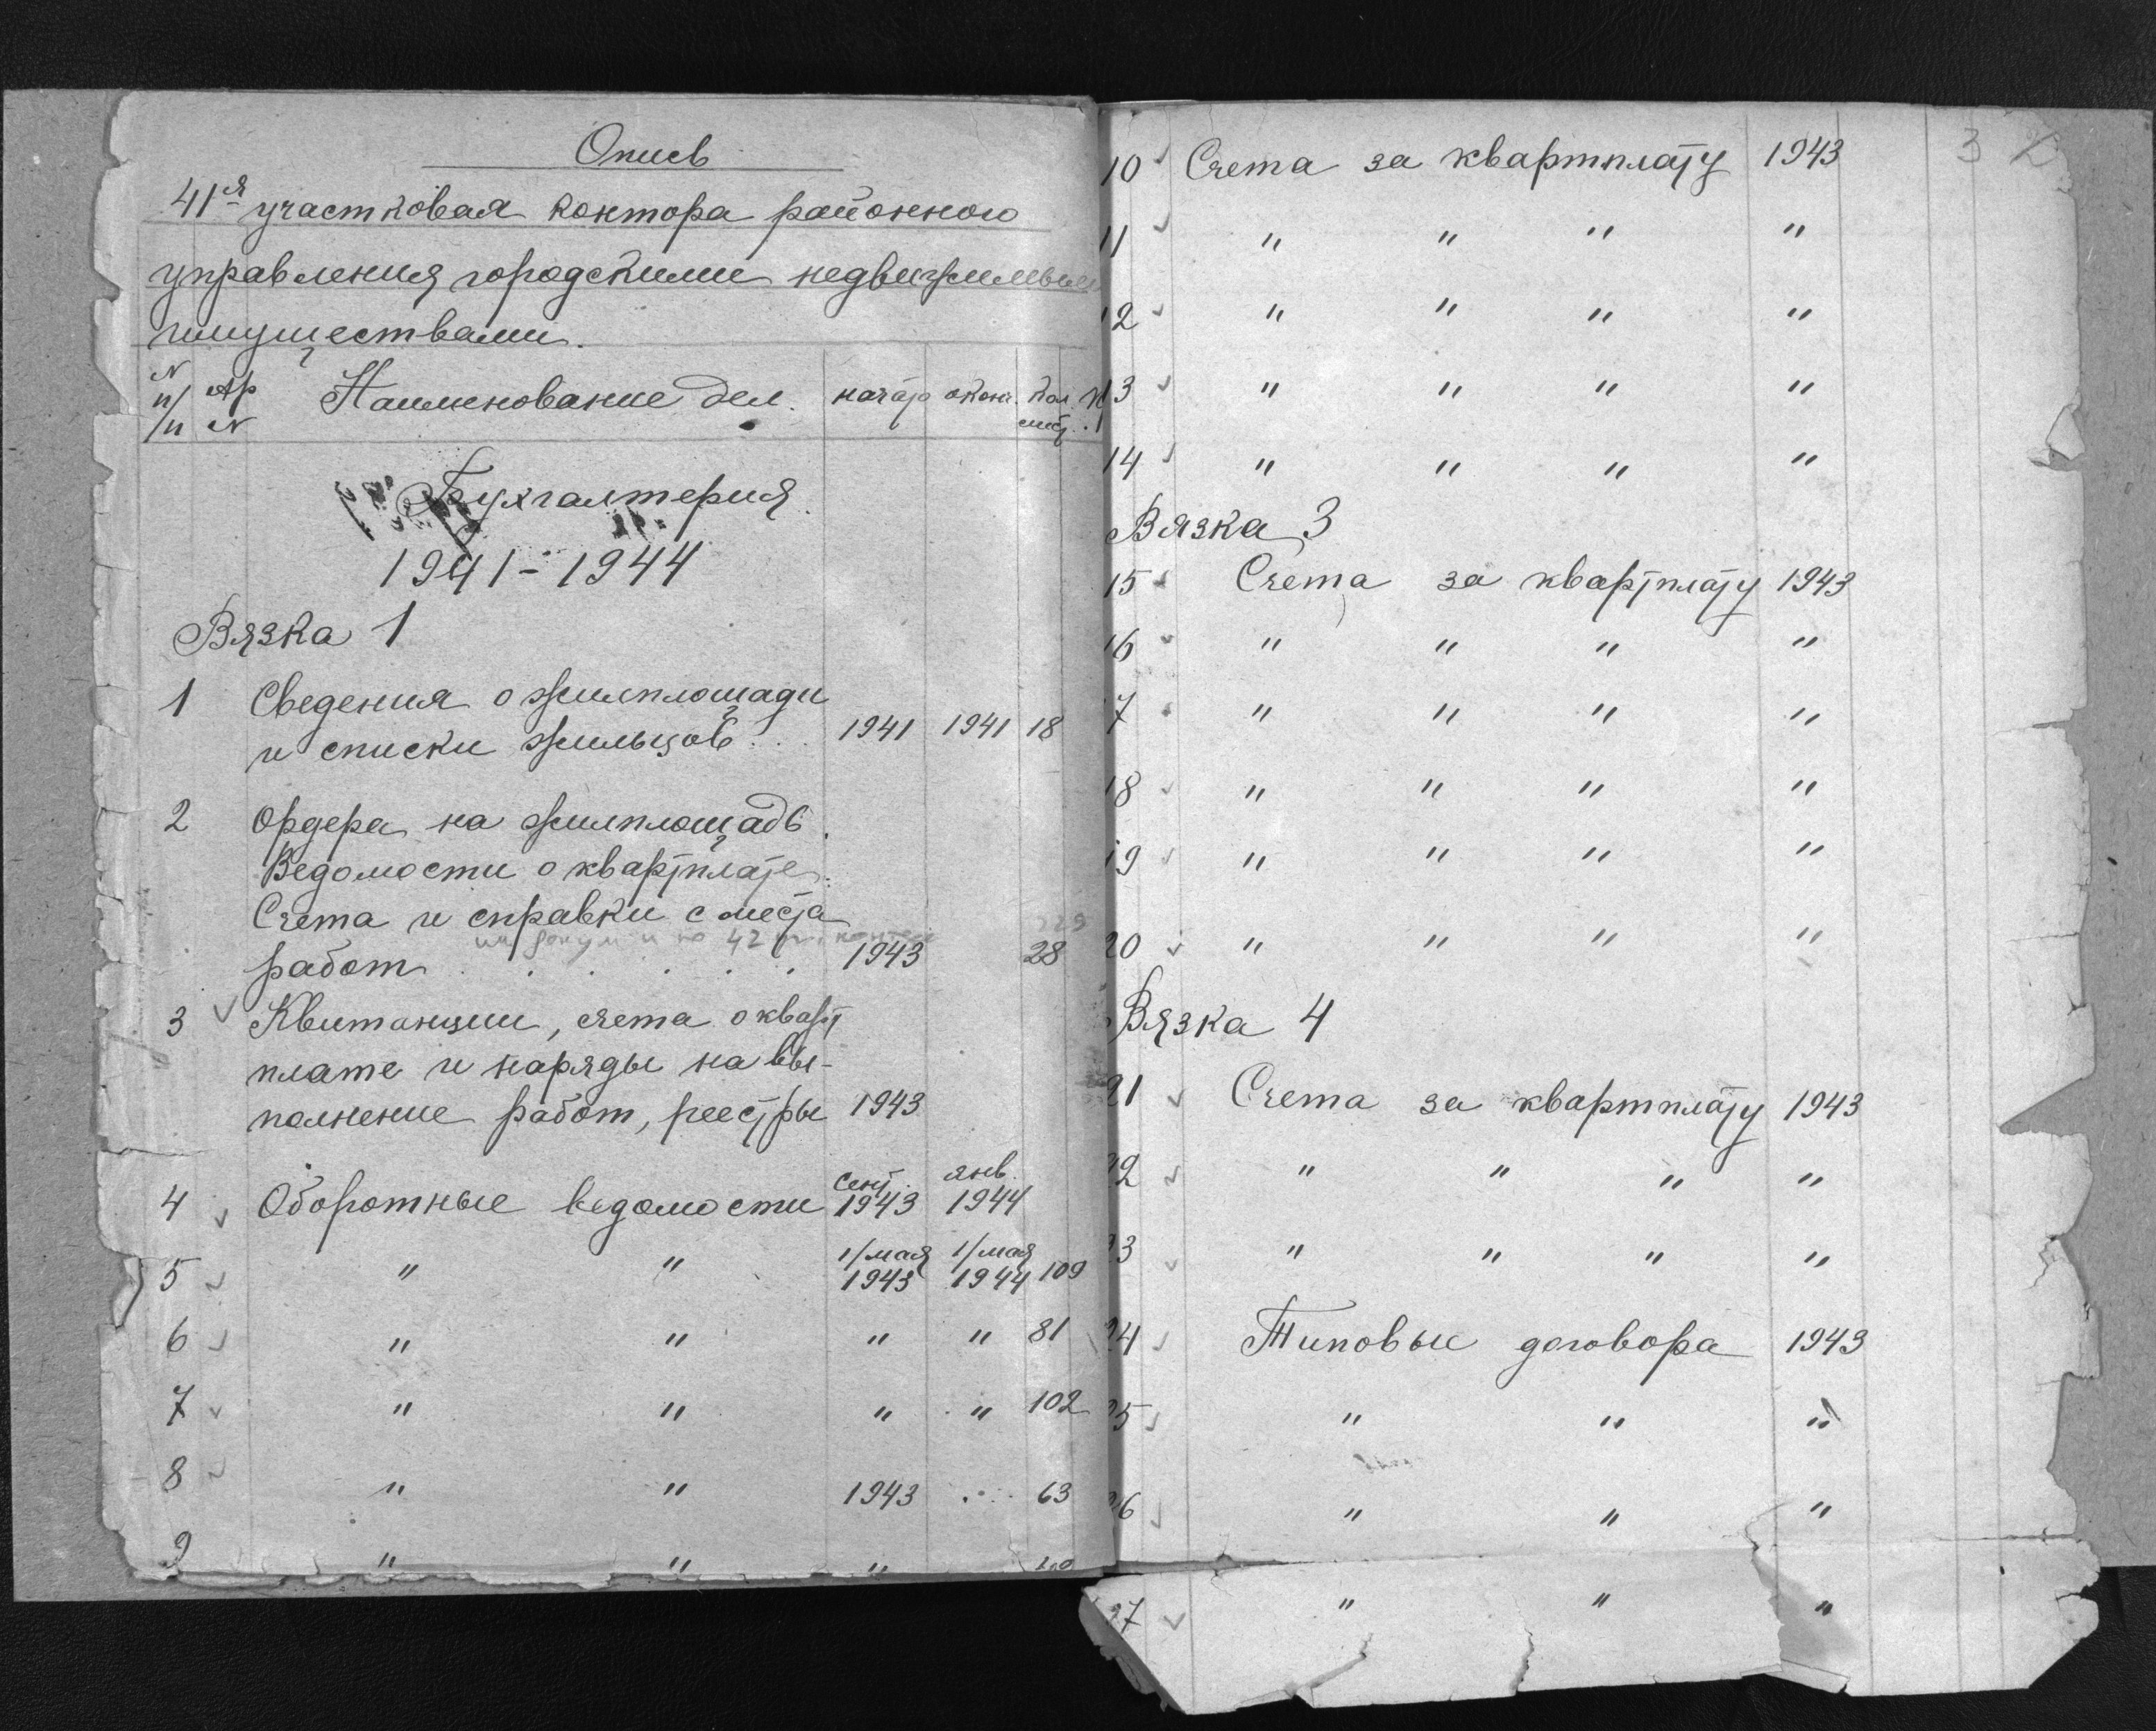 Опись
41я участковая контора районного
управления городскими недвижимыми
имуществами.
N п/п Ар N Наименование дел. начато оконч. Кол. лист.
Бухгалтерия
1941-1944
Вязка 1
1 Сведения о жилплощади
и списки жильцов. . . 1941 1941 18
2 Ордера на жилплощадь.
Ведомости о квартплате.
Счета и справки с места
работ . . . . . . 1943 28
3 Квитанции, счета о кварт
плате и наряды на вы-
полнение работ, реестры 1943
4 Оборотные ведомости сент. 1943 янв. 1944
5 " " 1/мая 1943 1/мая 1944 109
6 " " " " 81
7 " " " " 102
8 " " 1943 63
9 " " "
3
10 Счета за квартплату 1943
11 " " " "
12 " " " "
13 " " " "
14 " " " "
Вязка 3
15 Счета за квартплату 1943
16 " " " "
17 " " " "
18 " " " "
19 " " " "
20 " " " "
Вязка 4
21 Счета за квартплату 1943
22 " " " "
23 " " " "
24 Типовые договора 1943
25 " " "
26 " " "
27 " " "